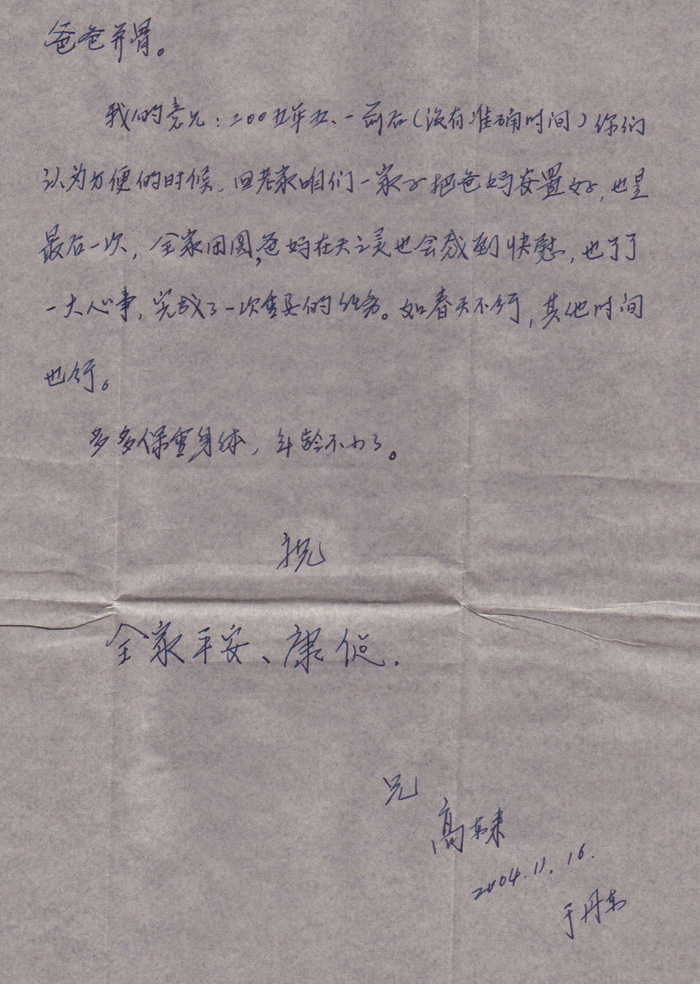 爸爸并骨。
我的意见：二00五年五、一前后（没有准确时间）你们
认为方便的时候，回老家咱们一家子把爸妈安置好，也是
最后一次，全家团圆，爸妈在天之灵也会感到快慰，也了了
一大心事，完成了一次重要的任务。如春天不行，其他时间
也行。
多多保重身体，年龄不小了。
祝
全家平安、康健.
兄
高
2004.11.16.
于丹东